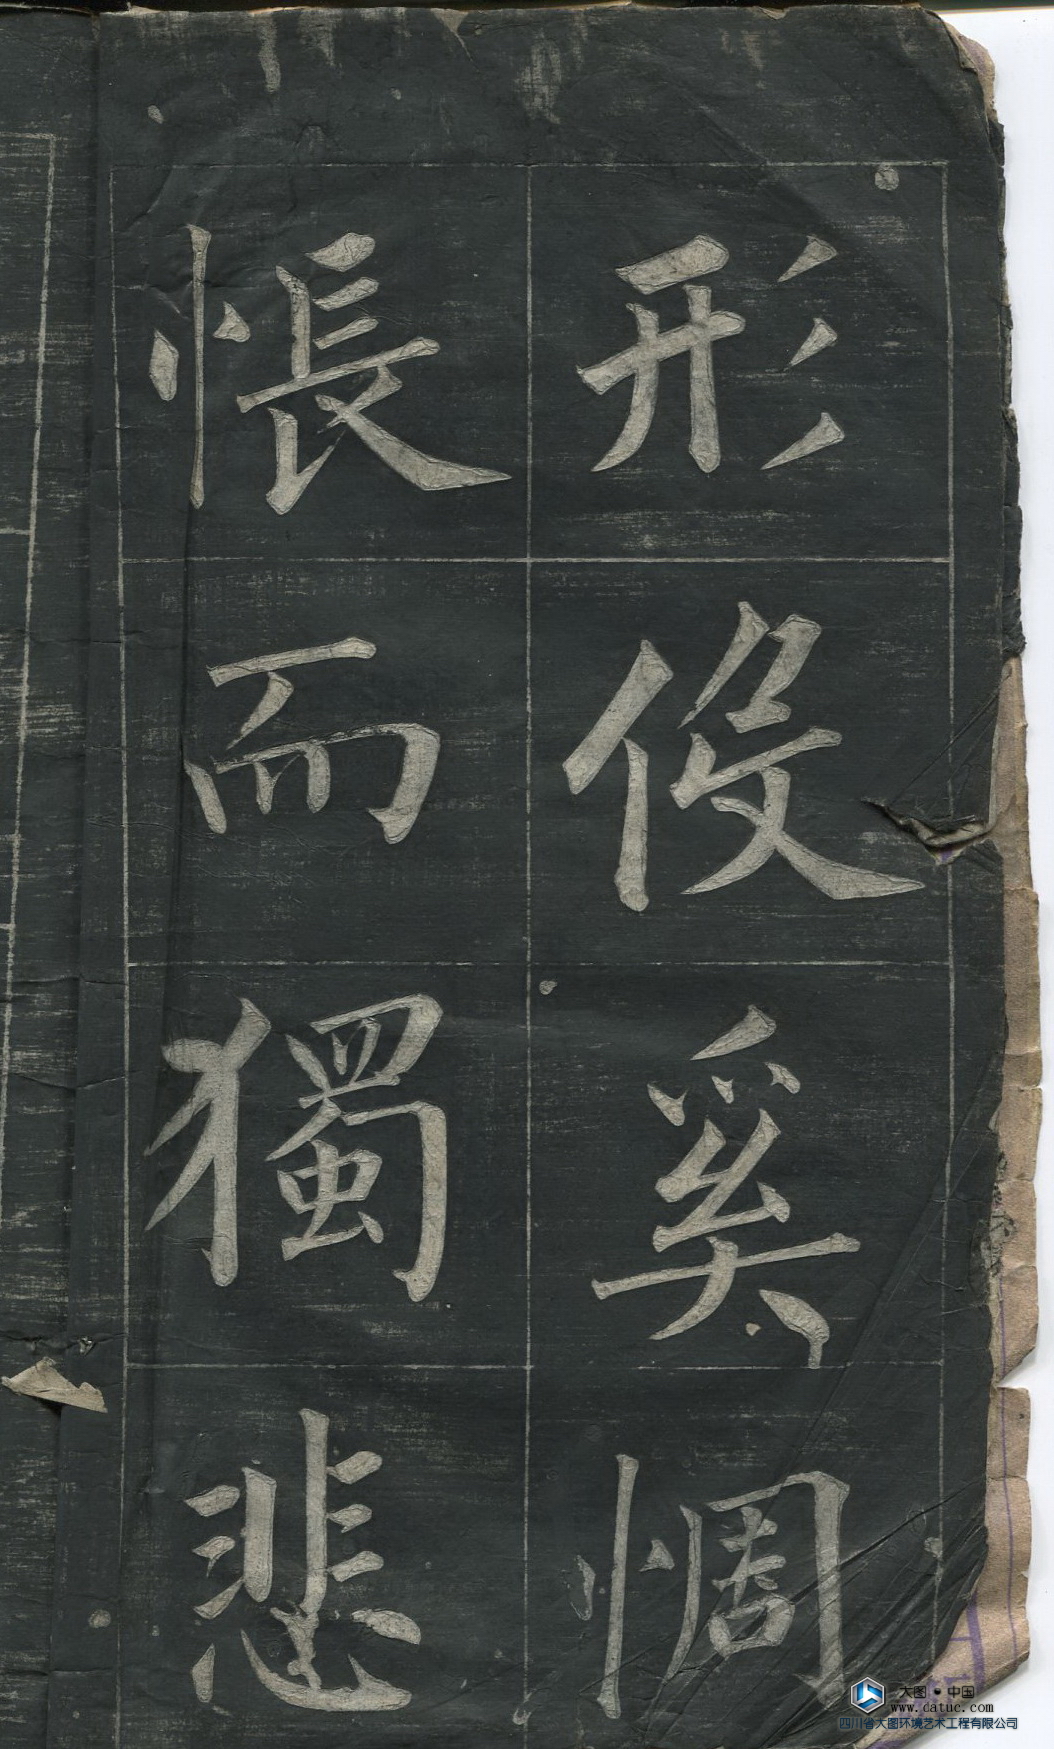 形役奚惆
悵而獨悲
大图·中国
www.datuc.com
四川省大图环境艺术工程有限公司